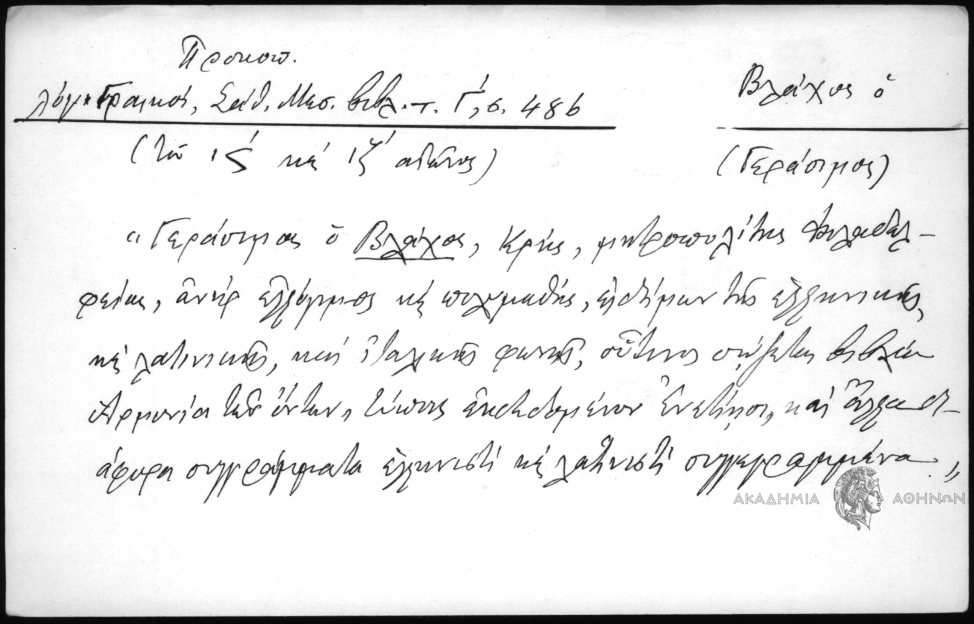 Προκοπ.
λόγιοι Γραικοί, Σάθ. Μεσ. βιβλ. τ. Γ΄, σ. 486
Βλάχος ὁ
(τοῦ ις΄ καὶ ιζ΄ αἰῶνος)
(Γεράσιμος)
"Γεράσιμος ὁ Βλάχος, Κρής, μητροπολίτης Φιλαδελ-
φείας, ἀνὴρ ἐλλόγιμος καὶ πολυμαθής, εἰδήμων τῆς ἑλληνικῆς,
καὶ λατινικῆς, καὶ ἰταλικῆς φωνῆς, οὗτινος σῴζεται βιβλίον
Ἁρμονία τῶν ὄντων, τύποις ἐκδεδομένον Ἐνετίησι, καὶ ἄλλα δι-
άφορα συγγράμματα ἑλληνιστὶ καὶ λατινιστὶ συγγεγραμμένα."
ΑΚΑΔΗΜΙΑ ΑΘΗΝΩΝ